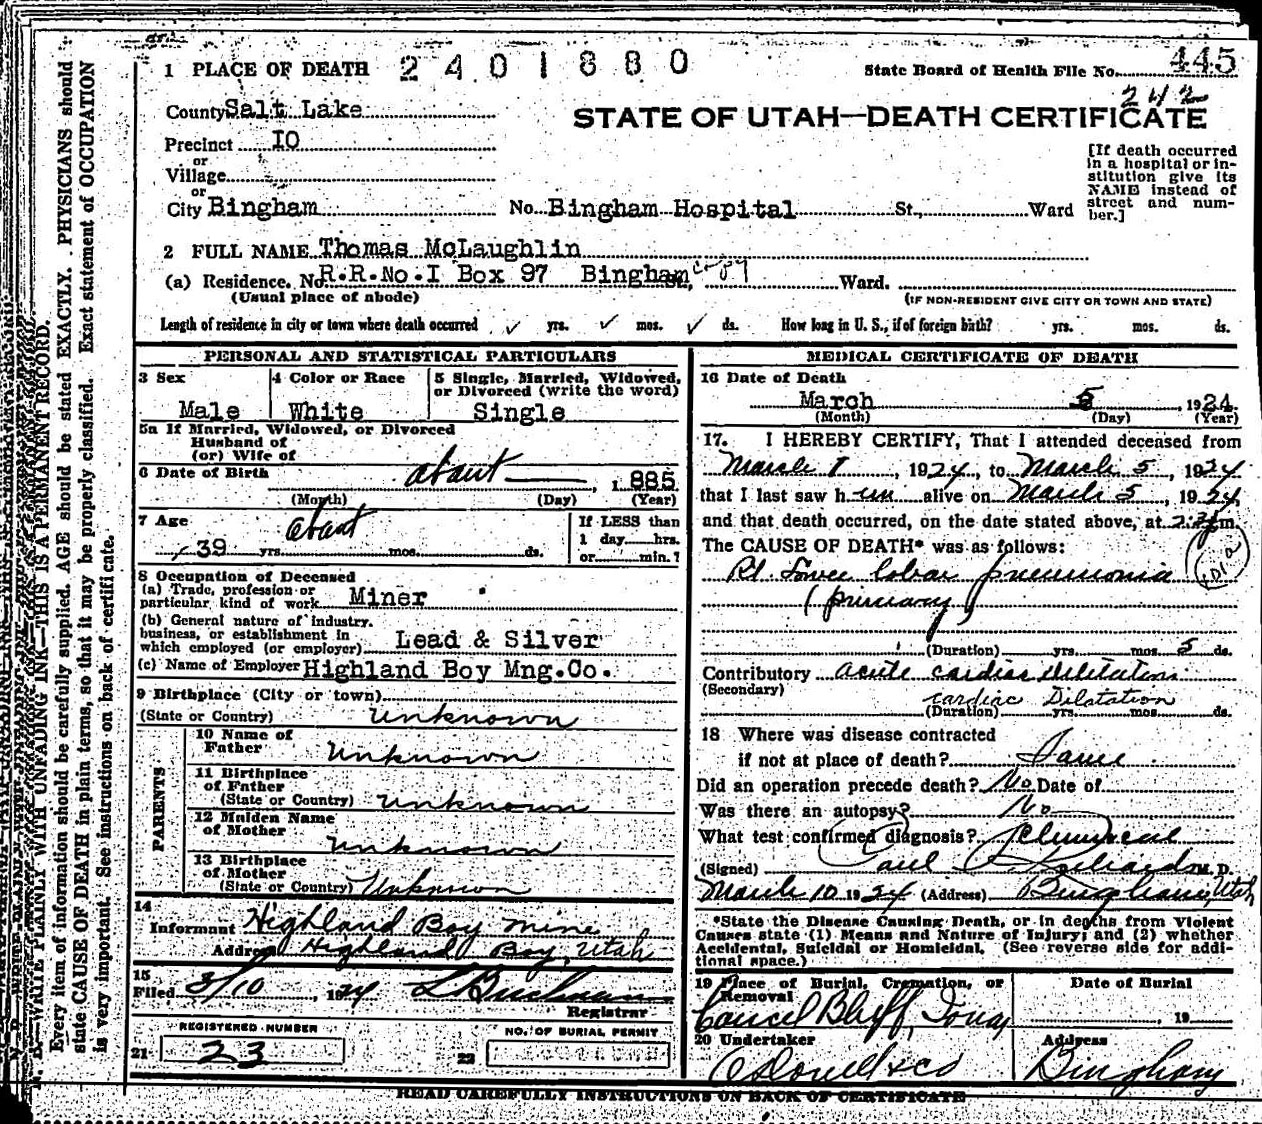 1 PLACE OF DEATH 2401880 State Board of Health File No. 445
242
County Salt Lake
STATE OF UTAH—DEATH CERTIFICATE
Precinct 10
or
Village
or
City Bingham No. Bingham Hospital St., Ward
[If death occurred
in a hospital or in-
stitution give its
NAME instead of
street and num-
ber.]
2 FULL NAME Thomas McLaughlin
(a) Residence. No. R.R.No.I Box 97 Bingham St., Ward.
(Usual place of abode) (IF NON-RESIDENT GIVE CITY OR TOWN AND STATE)
Length of residence in city or town where death occurred ✓ yrs. ✓ mos. ✓ ds. How long in U. S., if of foreign birth? yrs. mos. ds.
PERSONAL AND STATISTICAL PARTICULARS
3 Sex
Male
4 Color or Race
White
5 Single, Married, Widowed,
or Divorced (write the word)
Single
5a If Married, Widowed, or Divorced
Husband of
(or) Wife of
6 Date of Birth about , 1885
(Month) (Day) (Year)
7 Age about
39 yrs. mos. ds.
If LESS than
1 day hrs.
or min.?
8 Occupation of Deceased
(a) Trade, profession or
particular kind of work Miner
(b) General nature of industry.
business, or establishment in
which employed (or employer) Lead & Silver
(c) Name of Employer Highland Boy Mng.Co.
9 Birthplace (City or town)
(State or Country) Unknown
PARENTS
10 Name of
Father Unknown
11 Birthplace
of Father
(State or Country) Unknown
12 Maiden Name
of Mother
Unknown
13 Birthplace
of Mother
(State or Country) Unknown
14
Informant Highland Boy Mine
Address Highland Boy, Utah
15
Filed 3/10, 1924 L Buchman
Registrar
REGISTERED NUMBER
21 23
NO. OF BURIAL PERMIT
22
MEDICAL CERTIFICATE OF DEATH
16 Date of Death
March 5 , 1924
(Month) (Day) (Year)
17. I HEREBY CERTIFY, That I attended deceased from
March 1, 1924, to March 5, 1924
that I last saw him alive on March 5, 1924,
and that death occurred, on the date stated above, at m.
The CAUSE OF DEATH* was as follows:
Rt. Lower lobar pneumonia
(primary)
101a
(Duration) yrs. mos. 5 ds.
Contributory acute cardiac dilitation
(Secondary) cardiac Dilatation
(Duration) yrs. mos. ds.
18 Where was disease contracted
if not at place of death? Same
Did an operation precede death? No Date of
Was there an autopsy? No
What test confirmed diagnosis?
(Signed) Paul Richards M. D.
March 10, 1924 (Address) Bingham, Utah
*State the Disease Causing Death, or in deaths from Violent
Causes state (1) Means and Nature of Injury; and (2) whether
Accidental, Suicidal or Homicidal. (See reverse side for addi-
tional space.)
19 Place of Burial, Cremation, or
Removal
Council Bluff, Iowa
Date of Burial
, 19
20 Undertaker
Address
Bingham
READ CAREFULLY INSTRUCTIONS ON BACK OF CERTIFICATE
N. B.—WRITE PLAINLY WITH UNFADING INK—THIS IS A PERMANENT RECORD.
Every item of information should be carefully supplied. AGE should be stated EXACTLY. PHYSICIANS should
state CAUSE OF DEATH in plain terms, so that it may be properly classified. Exact statement of OCCUPATION
is very important. See instructions on back of certificate.